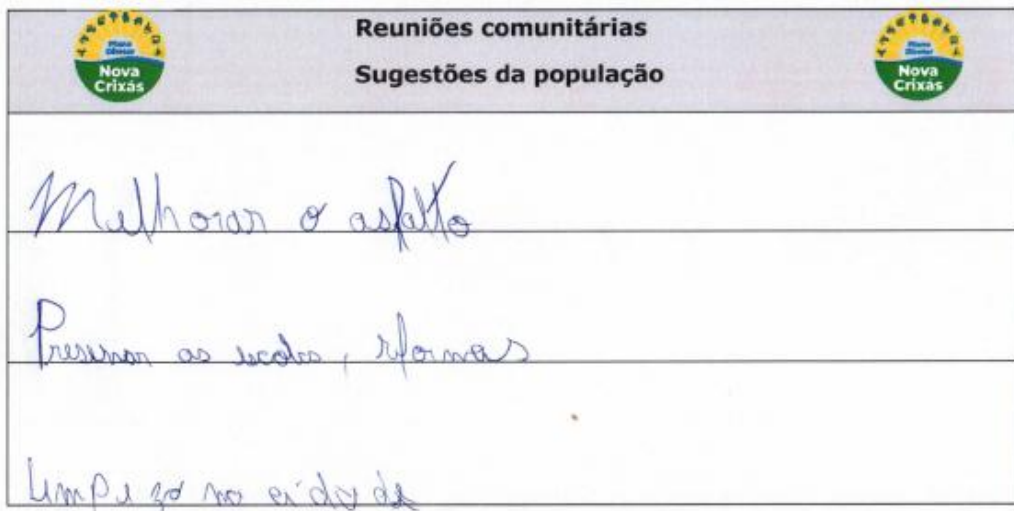 Plano Diretor
Nova Crixás
Reuniões comunitárias
Sugestões da população
Plano Diretor
Nova Crixás
Melhorar o asfalto
Preservar as escolas, reformas
Limpeza na cidade